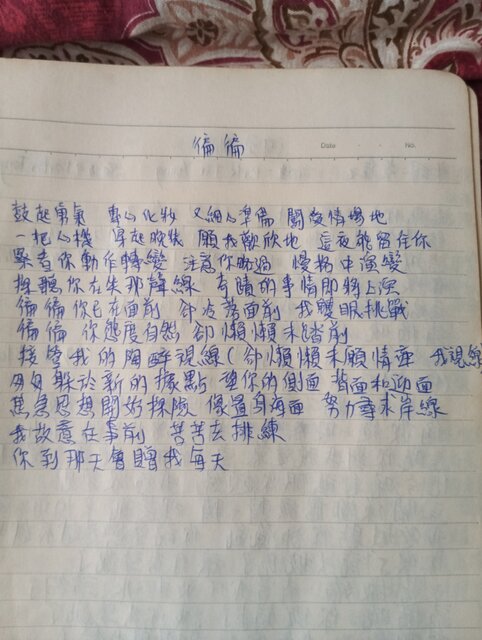 偏偏
Date . . No.
鼓起勇氣 專心化妝 又細心準備 闖愛情場地
一把心機 穿起晚裝 願我歡欣地 這夜能留住你
察看你動作轉變 注意你 過 慢格中演變
你在失 線 有 的事情即將上演
偏偏你已在面前 卻沒 面前 我雙眼挑戰
偏偏 你態度自然 卻懶懶未踏前
接管我的陶醉視線(卻懶懶未願情牽 我視線
匆匆躲於新的據點 望你的側面 背面和迎面
思想開始探險 像置身海面 努力尋求岸線
我故意在事前 苦苦去排練
你到那天會贈我每天